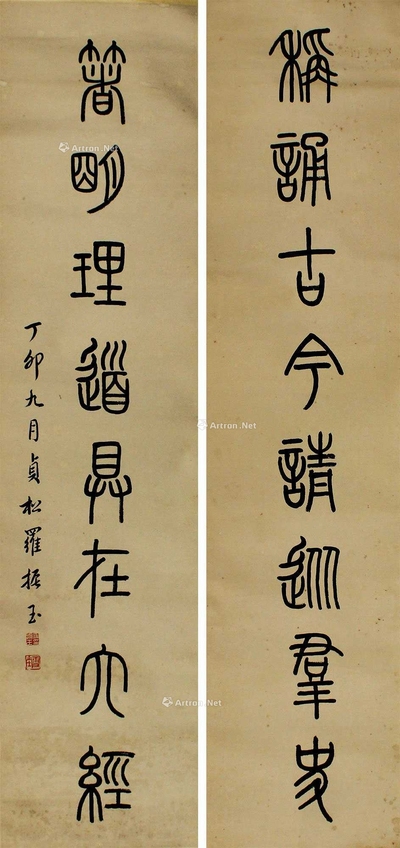 稱誦古今請巡羣史
箸朙理道具在六經
丁卯九月貞松羅振玉
Artron.Net
Artron.Net
Artron.Net